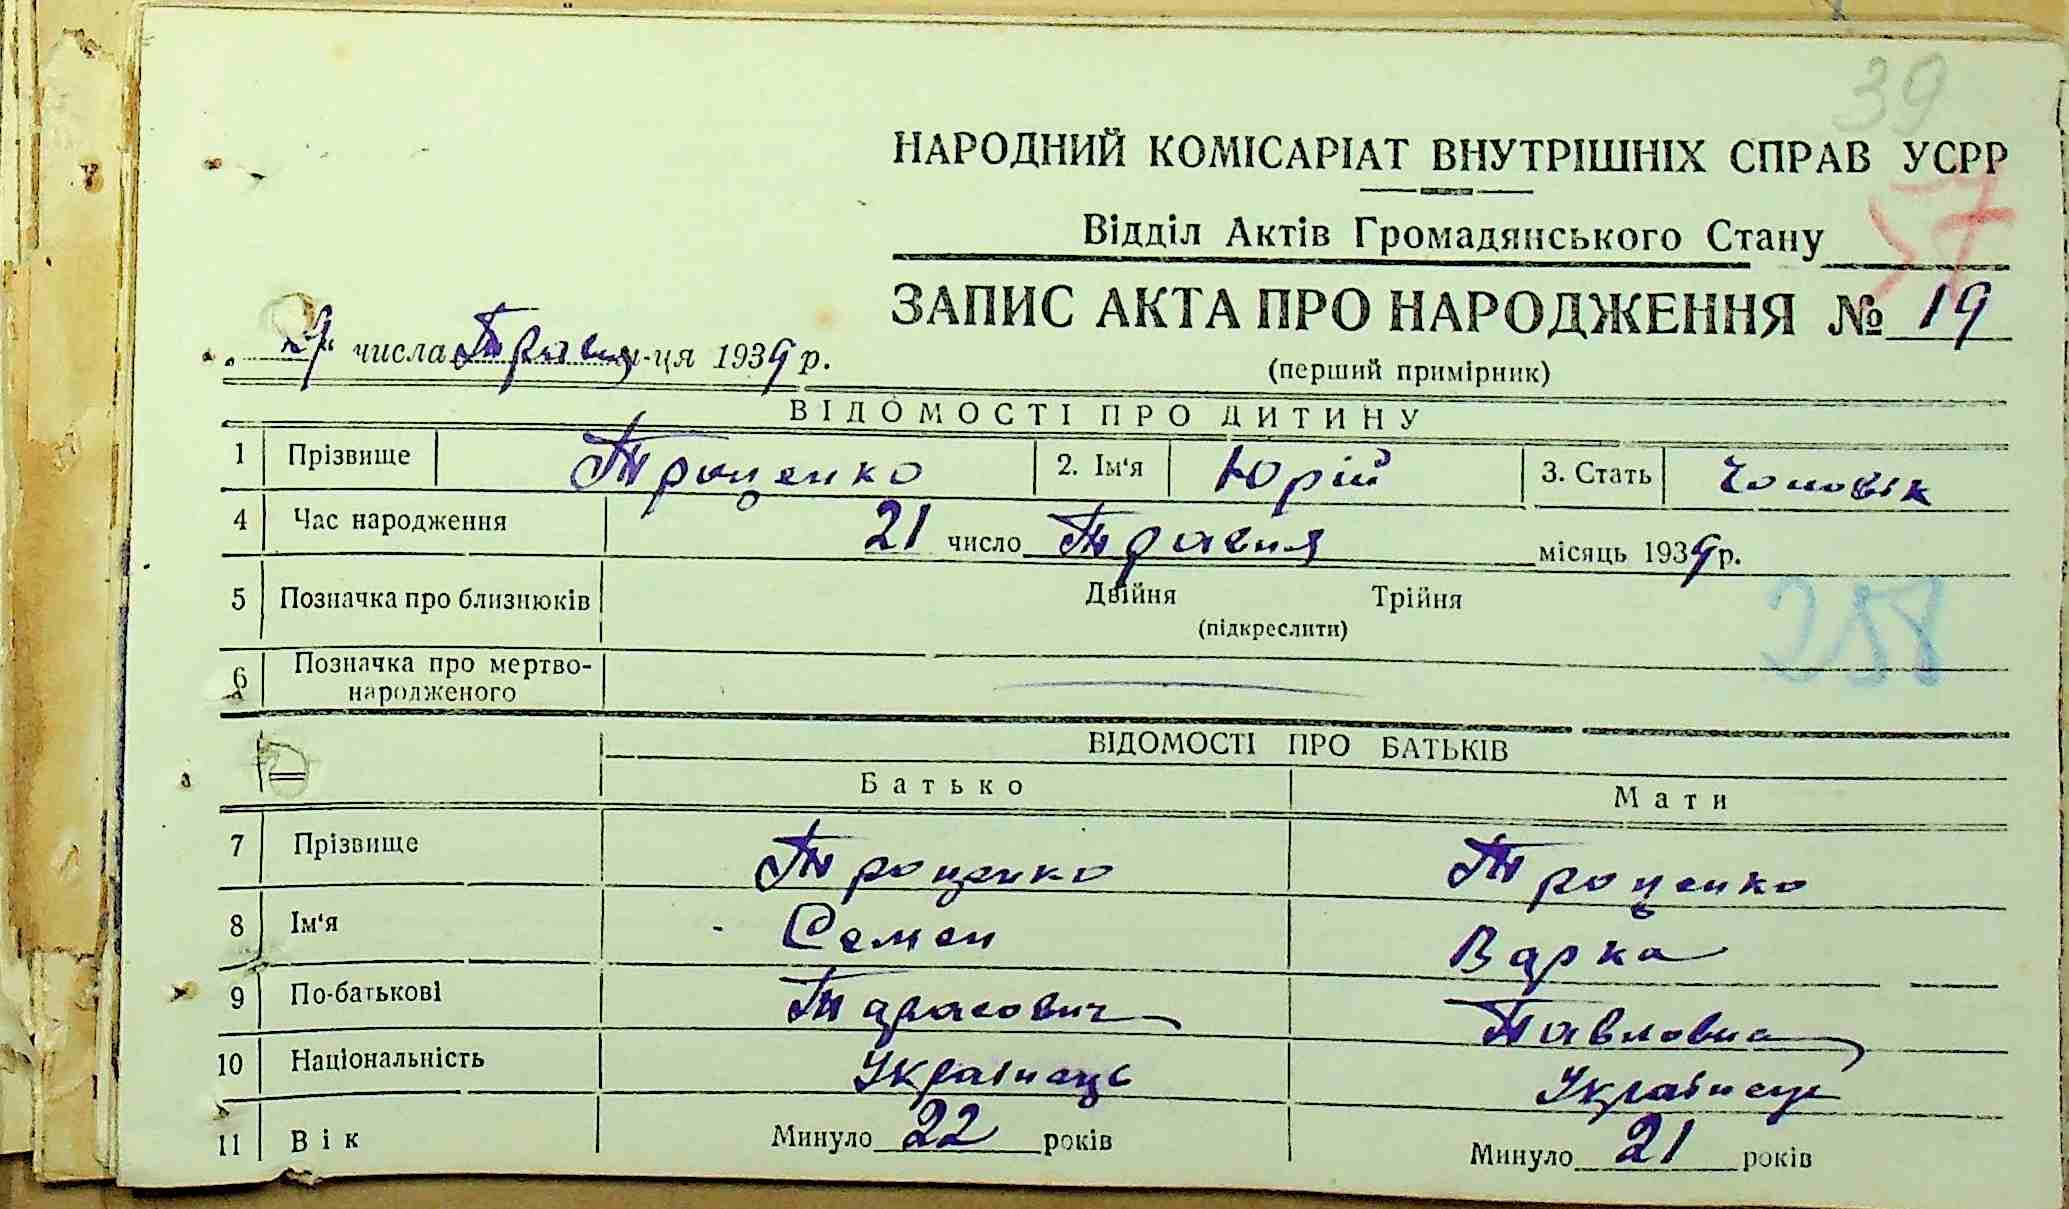 39
НАРОДНИЙ КОМІСАРІАТ ВНУТРІШНІХ СПРАВ УСРР
57
Відділ Актів Громадянського Стану
ЗАПИС АКТА ПРО НАРОДЖЕННЯ № 19
(перший примірник)
числа Травня м-ця 1939 р.
ВІДОМОСТІ ПРО ДИТИНУ
1 Прізвище Троценко 2. Ім'я Юрій 3. Стать Чоловік
4 Час народження 21 число Травня місяць 1939 р.
5 Позначка про близнюків Двійня Трійня
(підкреслити)
258
6 Позначка про мертво-
народженого
ВІДОМОСТІ ПРО БАТЬКІВ
Батько Мати
7 Прізвище Троценко Троценко
8 Ім'я Семен Варка
9 По-батькові Тарасович Павловна
10 Національність Українець Українець
11 Вік Минуло 22 років Минуло 21 років